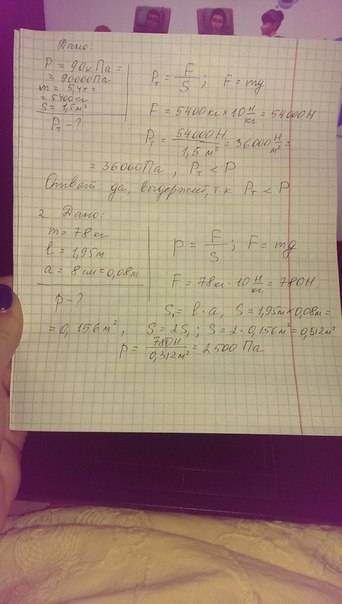 Дано:
P = 90кПа =
= 90000Па
m = 5,4т =
= 5400кг
S = 1,5м²
Pт - ?
Pт = F/S ; F = mg
F = 5400кг × 10 Н/кг = 54000Н
Pт = 54000Н/1,5м² = 36000 Н/м² =
= 36000Па, Pт < P
Ответ да, выдержит, т.к Pт < P
2. Дано:
m = 78кг
l = 1,95м
a = 8см = 0,08м
p - ?
p = F/S ; F = mg
F = 78кг · 10 Н/кг = 780Н
S₁ = l · a, S = 1,95м × 0,08м =
= 0,156м², S = 2S₁ ; S = 2 · 0,156м² = 0,312м²
p = 780Н/0,312м² = 2500 Па